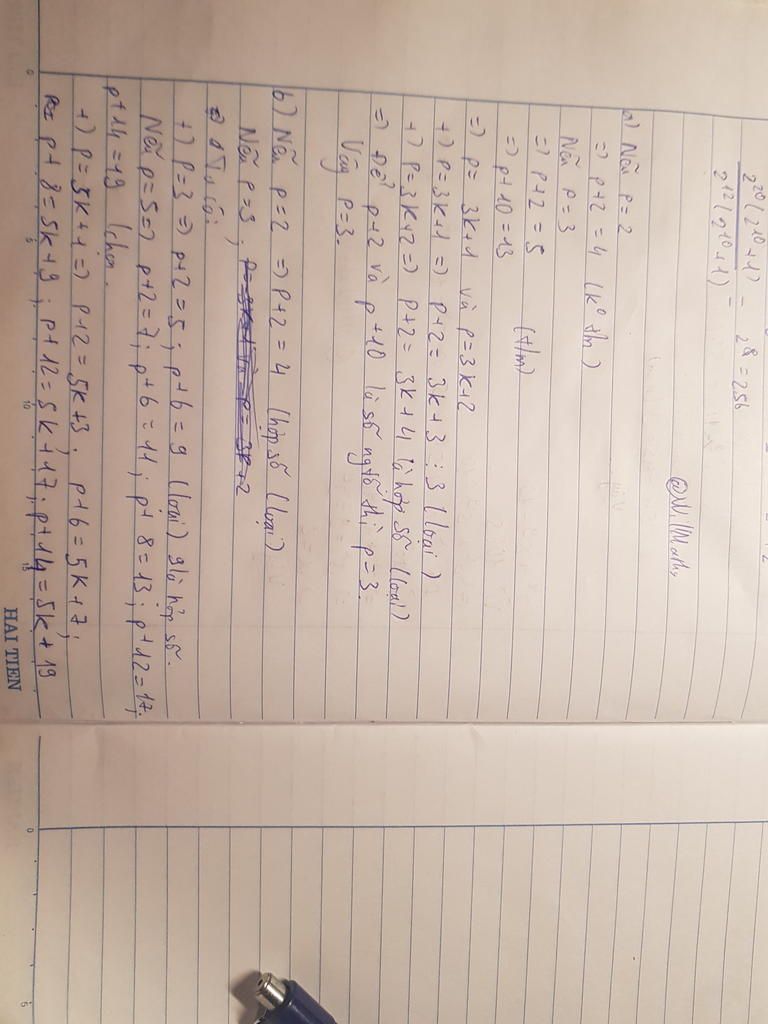 2²⁰(2¹⁰+1) / 2¹²(2¹⁰+1) = 2⁸ = 256
@WillMath
a) Nếu p=2
=> p+2=4 (k° t/m)
Nếu p=3
=> p+2=5
(t/m)
=> p+10=13
=> p= 3k+1 và p=3k+2
+) p=3k+1 => p+2= 3k+3 ⋮ 3 (loại)
+) p=3k+2 => p+2= 3k+4 là hợp số (loại)
=> Để p+2 và p+10 là số ng tố thì p=3.
Vậy p=3.
b) Nếu p=2 => p+2=4 (hợp số (loại)
Nếu p=3, p=3k+1 và p=3k+2
+) p=3 => p+2=5; p+6=9 (loại) 9 là hợp số.
Nếu p=5 => p+2=7; p+6=11; p+8=13; p+12=17;
p+14=19 (chọn.
+) p=5k+1 => p+2=5k+3; p+6=5k+7;
p+8=5k+9; p+12=5k+17; p+14=5k+19
HAI TIEN
0
5
10
15
0
5